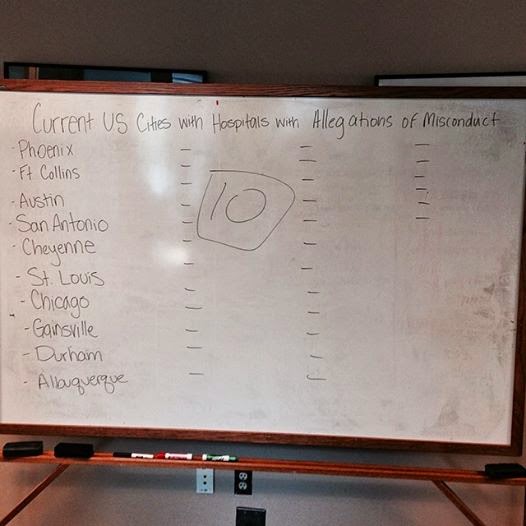 Current US Cities with Hospitals with Allegations of Misconduct
- Phoenix
- Ft Collins
- Austin
- San Antonio
- Cheyenne
- St. Louis
- Chicago
- Gainsville
- Durham
- Albuquerque
10